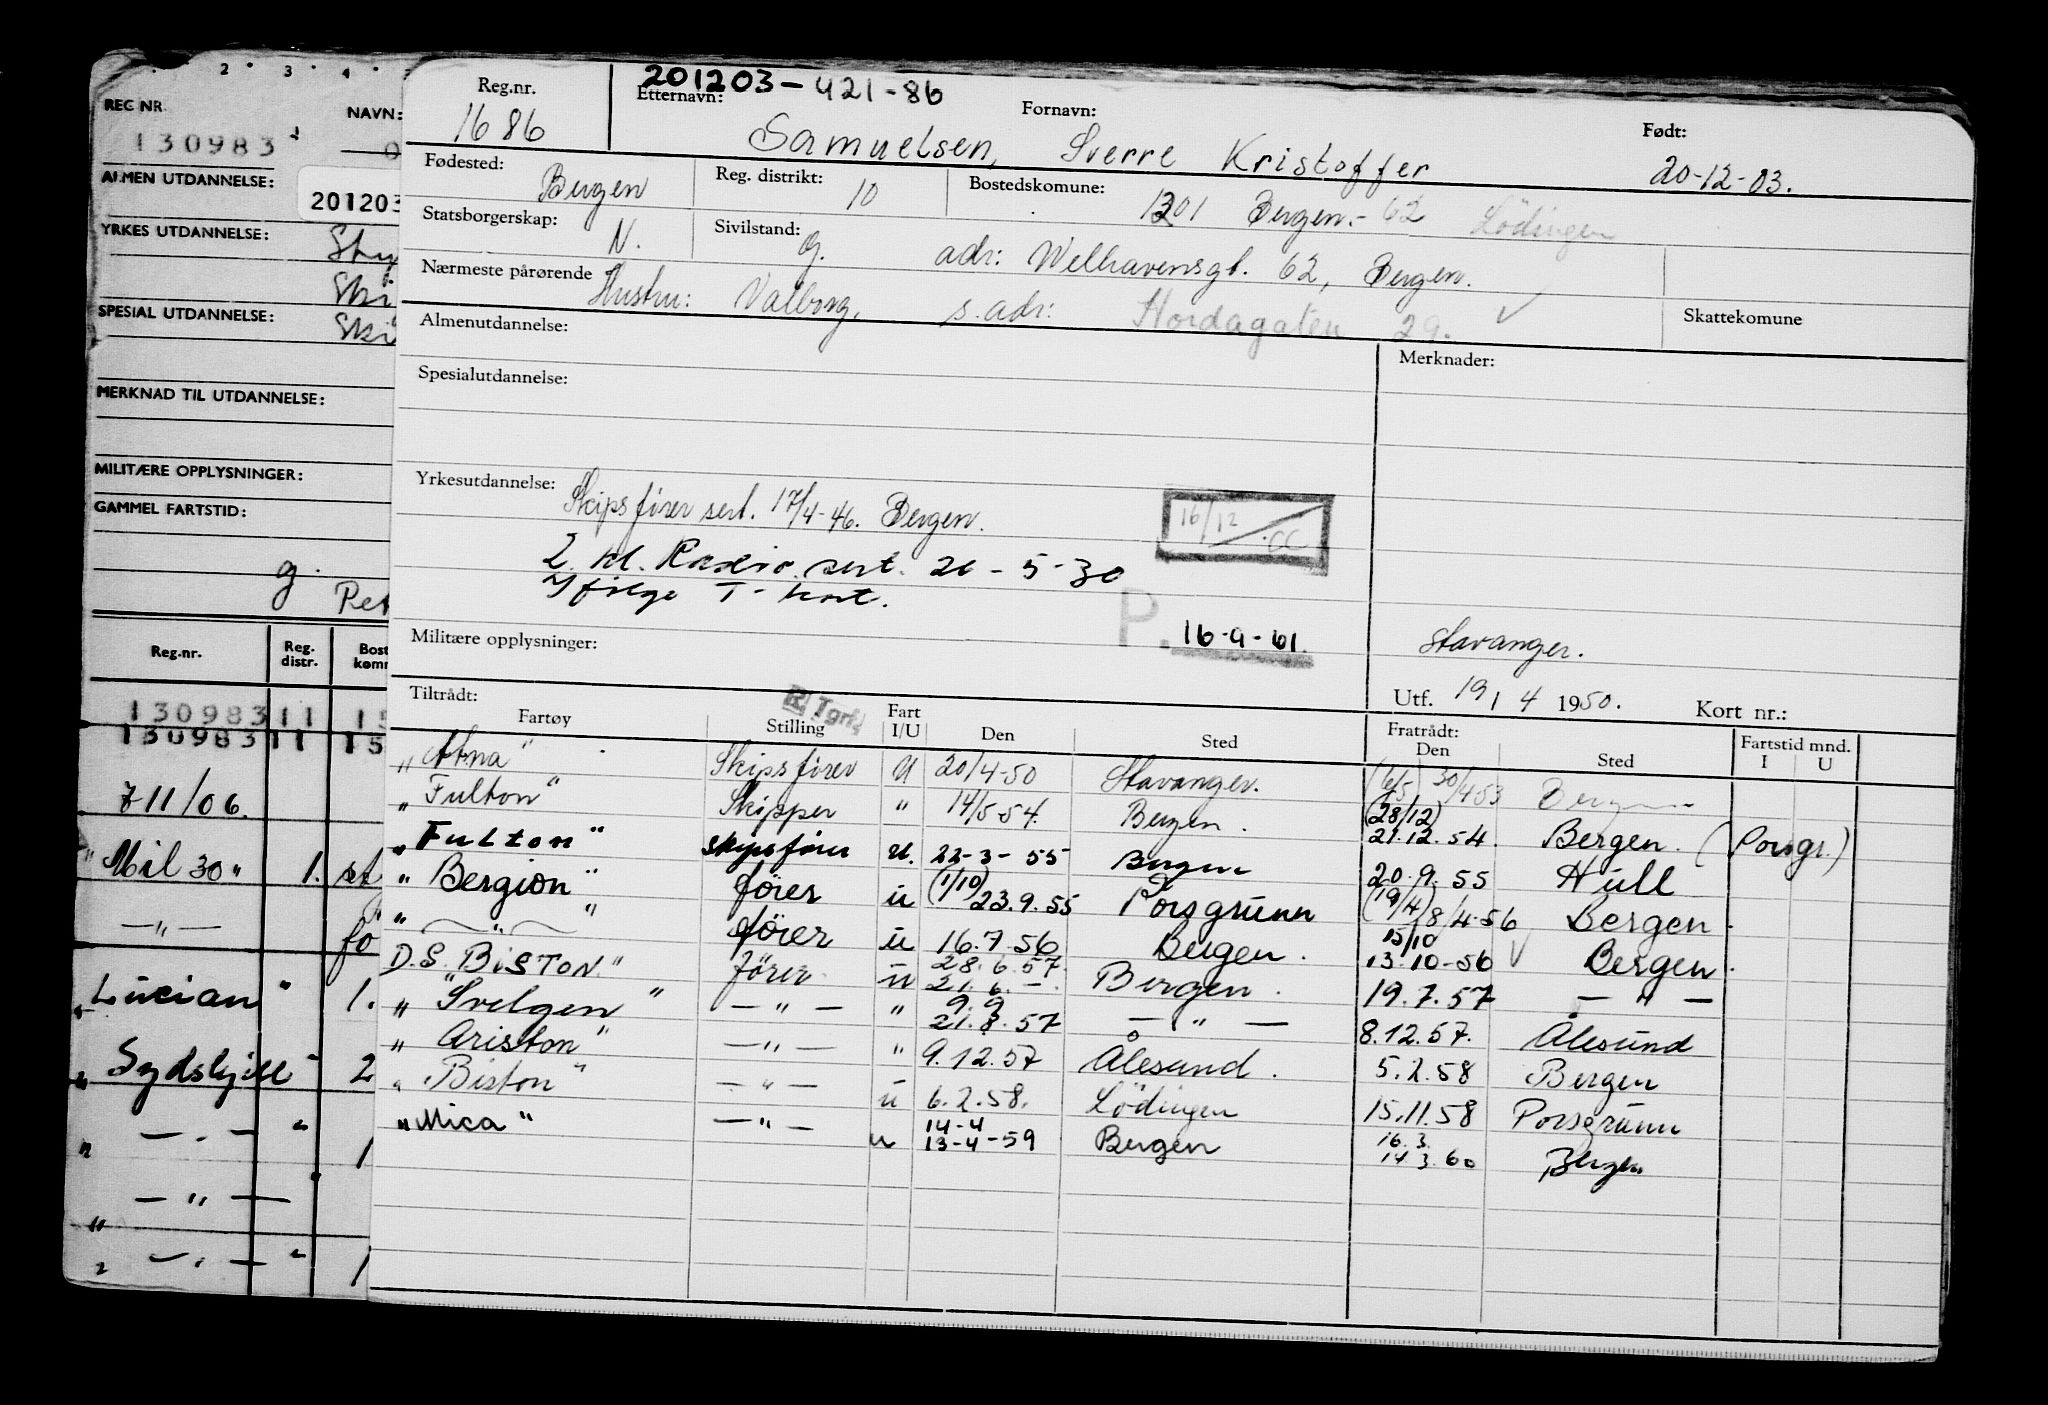 2 3 4
REG NR.
NAVN:
130983
ALMEN UTDANNELSE:
201203
YRKES UTDANNELSE:
SPESIAL UTDANNELSE:
MERKNAD TIL UTDANNELSE:
MILITÆRE OPPLYSNINGER:
GAMMEL FARTSTID:
g.
Reg.nr. Reg. distr.
130983 11 15
130983 11 15
711/06.
Mil 30 " 1. st
— " —
Lucian " 1.
Sydskjell 2
— " — " 1
— " — "
— " — " 1
201203-421-86
Reg.nr. Etternavn: Fornavn: Født:
1686 Samuelsen, Sverre Kristoffer 20-12-03.
Fødested: Bergen Reg. distrikt: 10 Bostedskomune: 1301 Bergen.- 62 Lödingen
Statsborgerskap: N. Sivilstand: g. adr: Welhavensgt. 62, Bergen.
Nærmeste pårørende Hustru: Valborg, s. adr: Hordagaten 29. Skattekomune
Almenutdannelse: Merknader:
Spesialutdannelse:
Yrkesutdannelse: Skipsfører sert. 17/4-46. Bergen.
16/12 CC
2. kl. Radio sert. 20-5-30
Ifølge T-kort.
P. 16-9-61.
Militære opplysninger: Stavanger.
Utf. 19/ 4 1950. Kort nr.:
Tiltrådt: Fratrådt:
R. Tgrf.
Fartøy Stilling Fart I/U Den Sted Den Sted Fartstid mnd. I U
" Atna " Skipsfører U 20/4-50 Stavanger. (6/5) 30/4 53 Bergen
" Fulton " Skipper " 14/5-54. Bergen. (28/12) 21.12.54. Bergen. (Porsgr.)
" Fulton " skipsfører u. 22-3-55 Bergen 20.9.55 Hull
" Bergion " fører u (1/10) 23.9.55 Porsgrunn (19/4) 8/4-56 Bergen.
" — " — " fører u 16.7.56 Bergen. 15/10 13-10-56 Bergen.
D.S. "Biston" fører u 28.6.57. 21.6.-. Bergen. 19.7.57 — " —
" Svelgen " — " — " 9.9 21.8.57 — " — 8.12.57. Ålesund
" Ariston " — " — " 9.12.57 Ålesund. 5.2.58 Bergen
" Biston " — " — u 6.2.58. Lödingen 15.11.58 Porsgrunn
" Mica " — " — u 14-4 13-4-59 Bergen 16.3. 14.3.60 Bergen